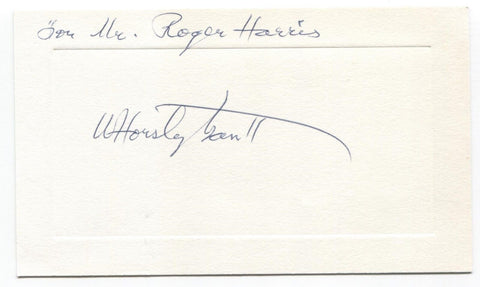 For Mr. Roger Harris
WHorsley Gantt